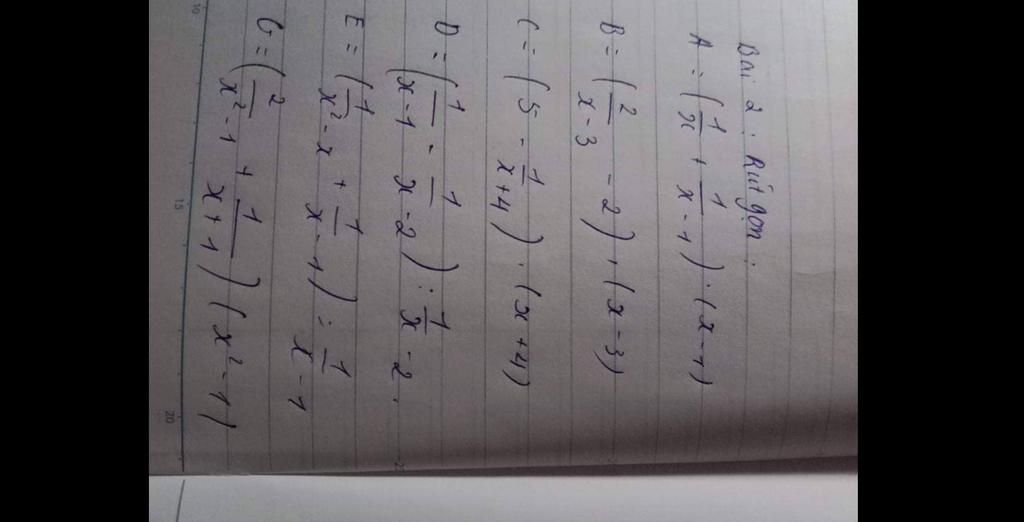 Bài 2. Rút gọn:
A = (1/x + 1/x-1) . (x-1)
B = (2/x-3 - 2) . (x-3)
C = (5 - 1/x+4) . (x+4)
D = (1/x-1 - 1/x-2) : 1/x-2.
E = (1/x²-x + 1/x-1) : 1/x-1
G = (2/x²-1 + 1/x+1) (x²-1)
10
15
20